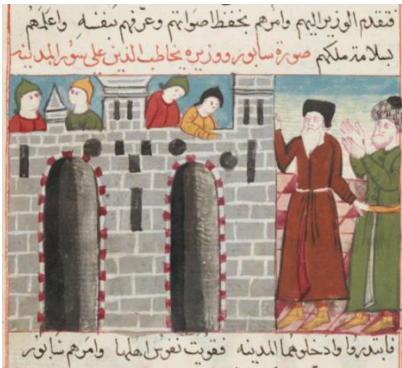 فتقدم الوزير اليهم وامرهم بخفض اصواتهم وعرفهم بنفسه واعلمهم
بسلامة ملكهم صورة سابور ووزيره يخاطب الذين على سور المدينه
فابتدروا وادخلوهما المدينه فقويت نفوس اهلها وامرهم سابور